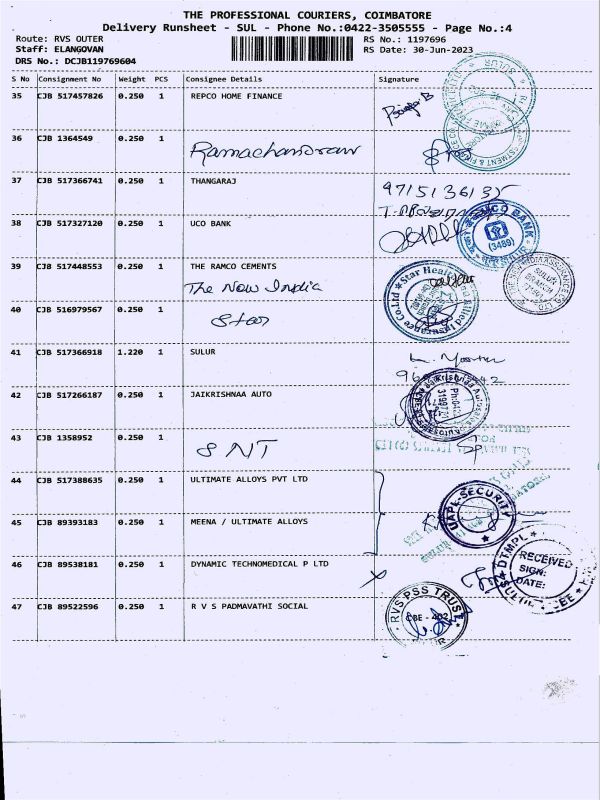 THE PROFESSIONAL COURIERS, COIMBATORE
Delivery Runsheet - SUL - Phone No.:0422-3505555 - Page No.:4
Route: RVS OUTER RS No.: 1197696
Staff: ELANGOVAN RS Date: 30-Jun-2023
DRS No.: DCJB119769604
S No Consignment No Weight PCS Consignee Details Signature
35 CJB 517457826 0.250 1 REPCO HOME FINANCE
36 CJB 1364549 0.250 1 Ramachandran
37 CJB 517366741 0.250 1 THANGARAJ 9715136135
38 CJB 517327120 0.250 1 UCO BANK
UCO BANK
(3489)
39 CJB 517448553 0.250 1 THE RAMCO CEMENTS
The New India
SULUR
BRANCH
40 CJB 516979567 0.250 1 Star
Star Health and Allied Insurance Co.Ltd
41 CJB 517366918 1.220 1 SULUR
42 CJB 517266187 0.250 1 JAIKRISHNAA AUTO
43 CJB 1358952 0.250 1 SNT
44 CJB 517388635 0.250 1 ULTIMATE ALLOYS PVT LTD
UAPL-SECURITY
45 CJB 89393183 0.250 1 MEENA / ULTIMATE ALLOYS
46 CJB 89538181 0.250 1 DYNAMIC TECHNOMEDICAL P LTD
DTMPL
RECEIVED
SIGN:
DATE:
47 CJB 89522596 0.250 1 R V S PADMAVATHI SOCIAL
RVS PSS TRUST
CBE - 402